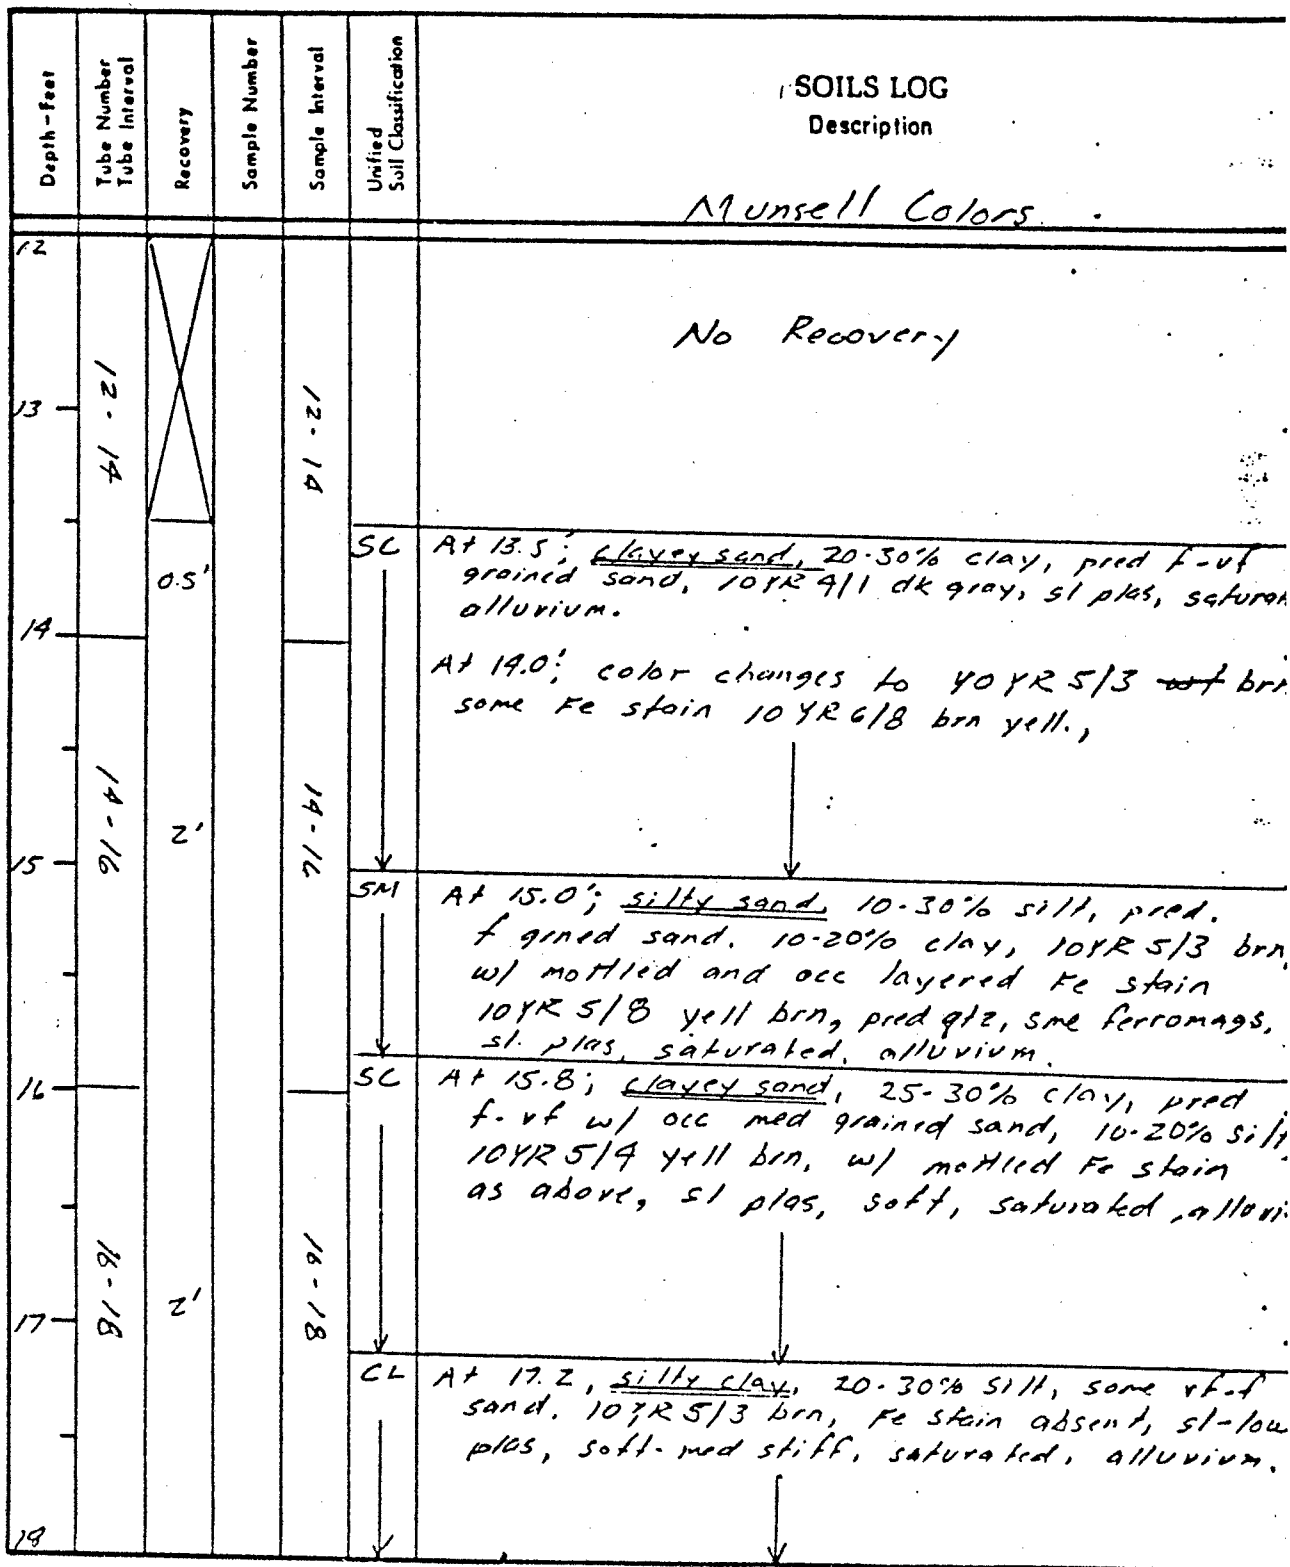 Depth-Feet
Tube Number
Tube Interval
Recovery
Sample Number
Sample Interval
Unified
Soil Classification
SOILS LOG
Description
Munsell Colors.
12
No Recovery
13
12-14
12-14
SC At 13.5'; clayey sand, 20-30% clay, pred f-vf
0.5'
grained sand, 10YR 4/1 dk gray, sl plas, saturat
alluvium.
14
At 14.0'; color changes to 10YR 5/3 brn
some Fe stain 10YR 6/8 brn yell.,
14-16
2'
14-16
15
SM At 15.0'; silty sand, 10-30% silt, pred.
f grned sand. 10-20% clay, 10YR 5/3 brn,
w/ mottled and occ layered Fe stain
10YR 5/8 yell brn, pred qtz, sme ferromags,
sl. plas, saturated, alluvium.
16
SC At 15.8; clayey sand, 25-30% clay, pred
f-vf w/ occ med grained sand, 10-20% silt,
10YR 5/4 yell brn, w/ mottled Fe stain
as above, sl plas, soft, saturated, alluvi
16-18
2'
16-18
17
CL At 17.2, silty clay, 20-30% silt, some vf-f
sand. 10YR 5/3 brn, Fe stain absent, sl-low
plas, soft-med stiff, saturated, alluvium.
18